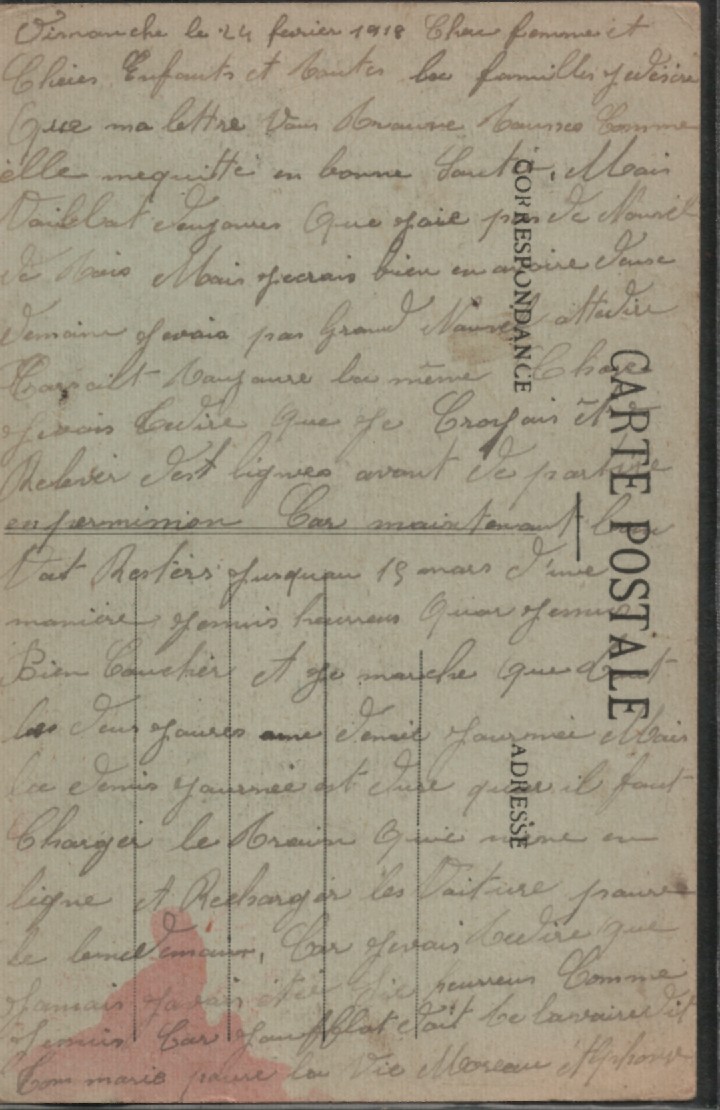 Dimanche le 24 fevrier 1918 Cher femme et
Cheres Enfants et toutes la familles je désire
Que ma lettre Vous trouve tousses Comme
elle mequitte en bonne Santé, Mais
toujoures Que jaie pas de Nouvel
de Mais jecrais bien en avoire deuse
demaine jevais pas Grand Nouvel attedire
toujoure la même Chose
jevais tedire que je Croyais
Relever dest lignes avant de partire
en permission Car maintenant
Vat Resters jusquau 15 mars d'une
manière jemuis heureus quar jemuis
Bien Coucher et je marche que
les deus joures une demie journée Mais
la demis journée est dure quar il faut
Charger le train Qui mène en
ligne et Recharger les Voiture poure
le lendemain, Car jevais tedire que
jamais javais étée heureus Comme
jemuis Car
Ton marie poure la Vie Moreau Alphonse
CORRESPONDANCE
CARTE POSTALE
ADRESSE